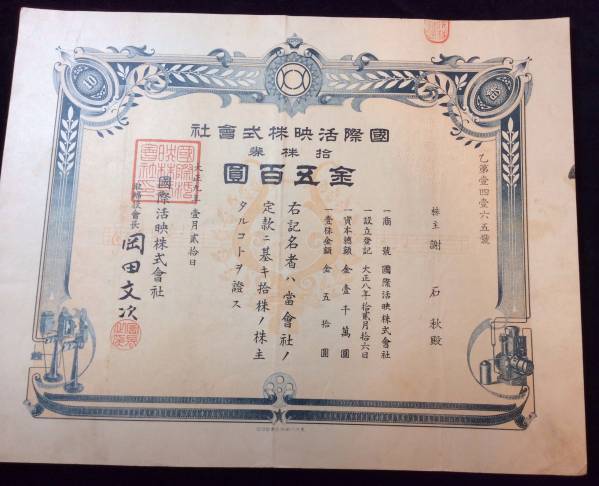 10
拾
國際活映株式會社
拾株券
金五百圓
乙第壹四壹六五號
株主 謝 石秋殿
一商號 國際活映株式會社
一設立登記 大正八年拾貳月拾六日
一資本總額 金壹千萬圓
一壹株金額 金五拾圓
右記名者ハ當會社ノ
定款ニ基キ拾株ノ株主
タルコトヲ證ス
大正九年壹月貳拾日
國際活映株式會社
取締役會長 岡田文次